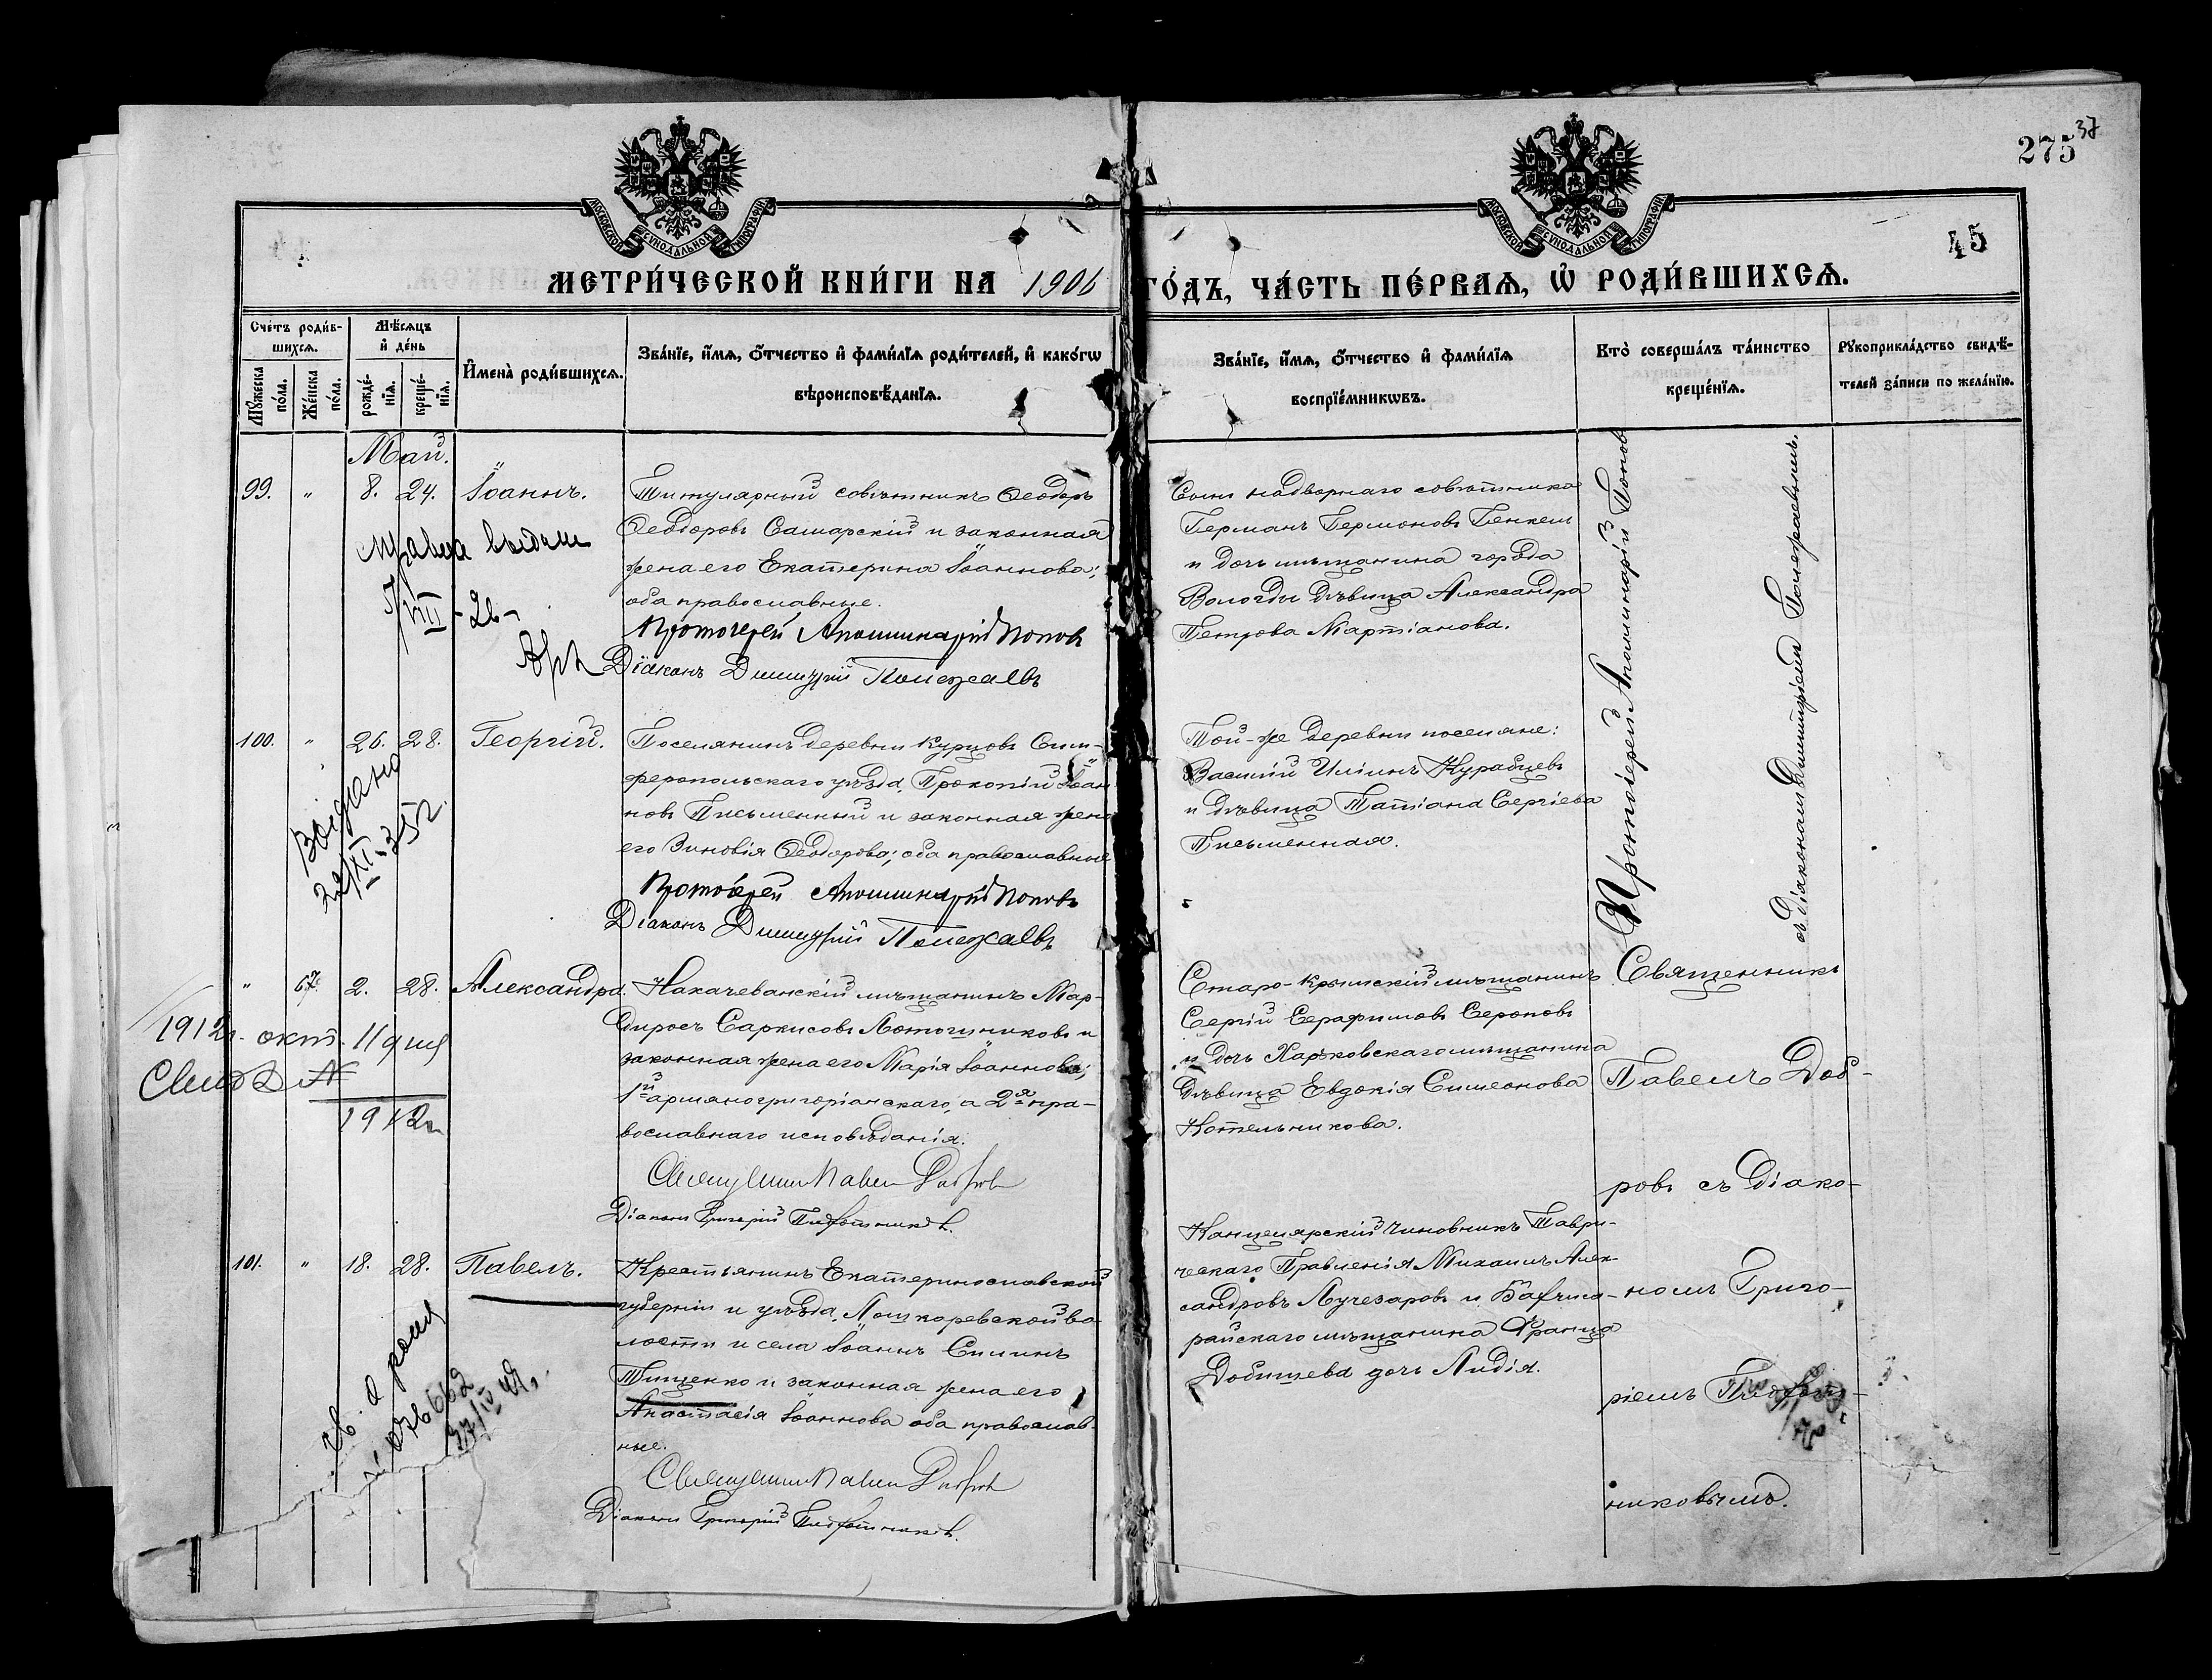 275 37
45
МОСКОВСКОЙ СѴНОДАЛЬНОЙ ТИПОГРАФІИ
МОСКОВСКОЙ СѴНОДАЛЬНОЙ ТИПОГРАФІИ
МЕТРИ́ЧЕСКОЙ КНИ́ГИ НА 1906 ГО́ДЪ, ЧА́СТЬ ПЕ́РВАѦ, Ѡ҆ РОДИ́ВШИХСѦ.
Сче́тъ роди́в-
шихсѧ.
Мꙋ́жеска по́ла.
Же́нска по́ла.
Мѣ́сѧцъ
и҆ де́нь
рожде́-
нїѧ.
креще́-
нїѧ.
И҆мена̀ роди́вшихсѧ.
Зва́нїе, и҆́мѧ, ѻ҆́тчество и҆ фами́лїѧ роди́телей, и҆ како́гѡ
вѣроисповѣ́данїѧ.
Зва́нїе, и҆́мѧ, ѻ҆́тчество и҆ фами́лїѧ
воспрїе́мникѡвъ.
Кто̀ соверша́лъ та́инство
креще́нїѧ.
Рꙋкоприкла́дство свидѣ́-
телей за́писи по жела́нїю.
Май.
99. " 8. 24. Іоаннъ.
Титулярный совѣтникъ Ѳеодоръ
Ѳеодоровъ Самарскій и законная
жена его Екатерина Іоаннова;
оба православные.
Протоіерей Аполлинарій Поповъ
Діаконъ Димитрій Полежаевъ
Сынъ надворнаго совѣтника
Германъ Германовъ Генкель
и дочь мѣщанина города
Вологды дѣвица Александра
Петрова Мартіанова.
Протоіерей Аполлинарій Поповъ
съ діакономъ Димитріемъ Полежаевымъ.
справка выдана
VIII - 26 -
100. " 26. 28. Георгій.
Поселянинъ деревни Курцовъ Сим-
феропольскаго уѣзда, Прокопій Іоан-
новъ Письменный и законная жена
его Зиновія Ѳеодорова; оба православные
Протоіерей Аполлинарій Поповъ
Діаконъ Димитрій Полежаевъ
Той-же деревни поселяне:
Василій Иліинъ Курабцевъ
и дѣвица Татіана Сергіева
Письменная.
Выдано
22/XI-35 г.
" 67. 2. 28. Александра.
Нахачеванскій мѣщанинъ Мар-
диросъ Саркисовъ Лотошниковъ и
законная жена его Марія Іоаннова;
1й армяногригоріанскаго, а 2я пра-
вославнаго исповѣданія.
Священникъ Павелъ Добровъ
Діаконъ Григорій Плотниковъ.
Старо-Крымскій мѣщанинъ
Сергій Серафимовъ Серановъ
и дочь Харьковскаго мѣщанина
дѣвица Евдокія Симеонова
Котельникова.
1912 г. окт. 11 дня
Свид №
1912 г
Священникъ
Павелъ Доб-
ровъ съ діако-
номъ Григо-
ріемъ Плот-
никовымъ.
101. " 18. 28. Павелъ.
Крестьянинъ Екатеринославской
губерніи и уѣзда, Лошкаревской во-
лости и села Іоаннъ Силинъ
Тищенко и законная жена его
Анастасія Іоаннова оба православ-
ные.
Священникъ Павелъ Добровъ
Діаконъ Григорій Плотниковъ.
Канцелярскій чиновникъ Таври-
ческаго Правленія Михаилъ Алек-
сандровъ Лучезаровъ и Бахчиса-
райскаго мѣщанина Франца
Добышева дочь Лидія.
св. о рожд
076662